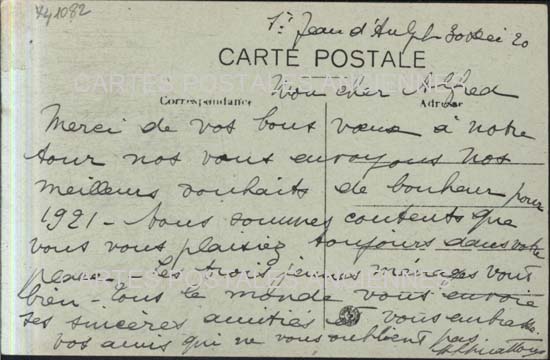 741082
St Jean d'Aulph 30 Dec 20
CARTE POSTALE
CARTES POSTALES ANCIENNES
Mon cher Alfred
Correspondance
Adresse
Merci de vos bons vœux à notre
tour nos vous envoyons nos
meilleurs souhaits de bonheur pour
1921 - Nous sommes contents que
vous vous plaisiez toujours dans votre
place. Les trois jeunes ménages vont
CARTES POSTALES ANCIENNES
bien - Tous le monde vous envoie
ses sincères amitiés et vous embrasse.
vos amis qui ne vous oublient pas